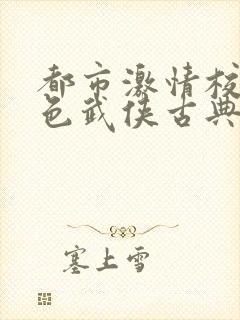 都市激情校
色武侠古典
塞上雪